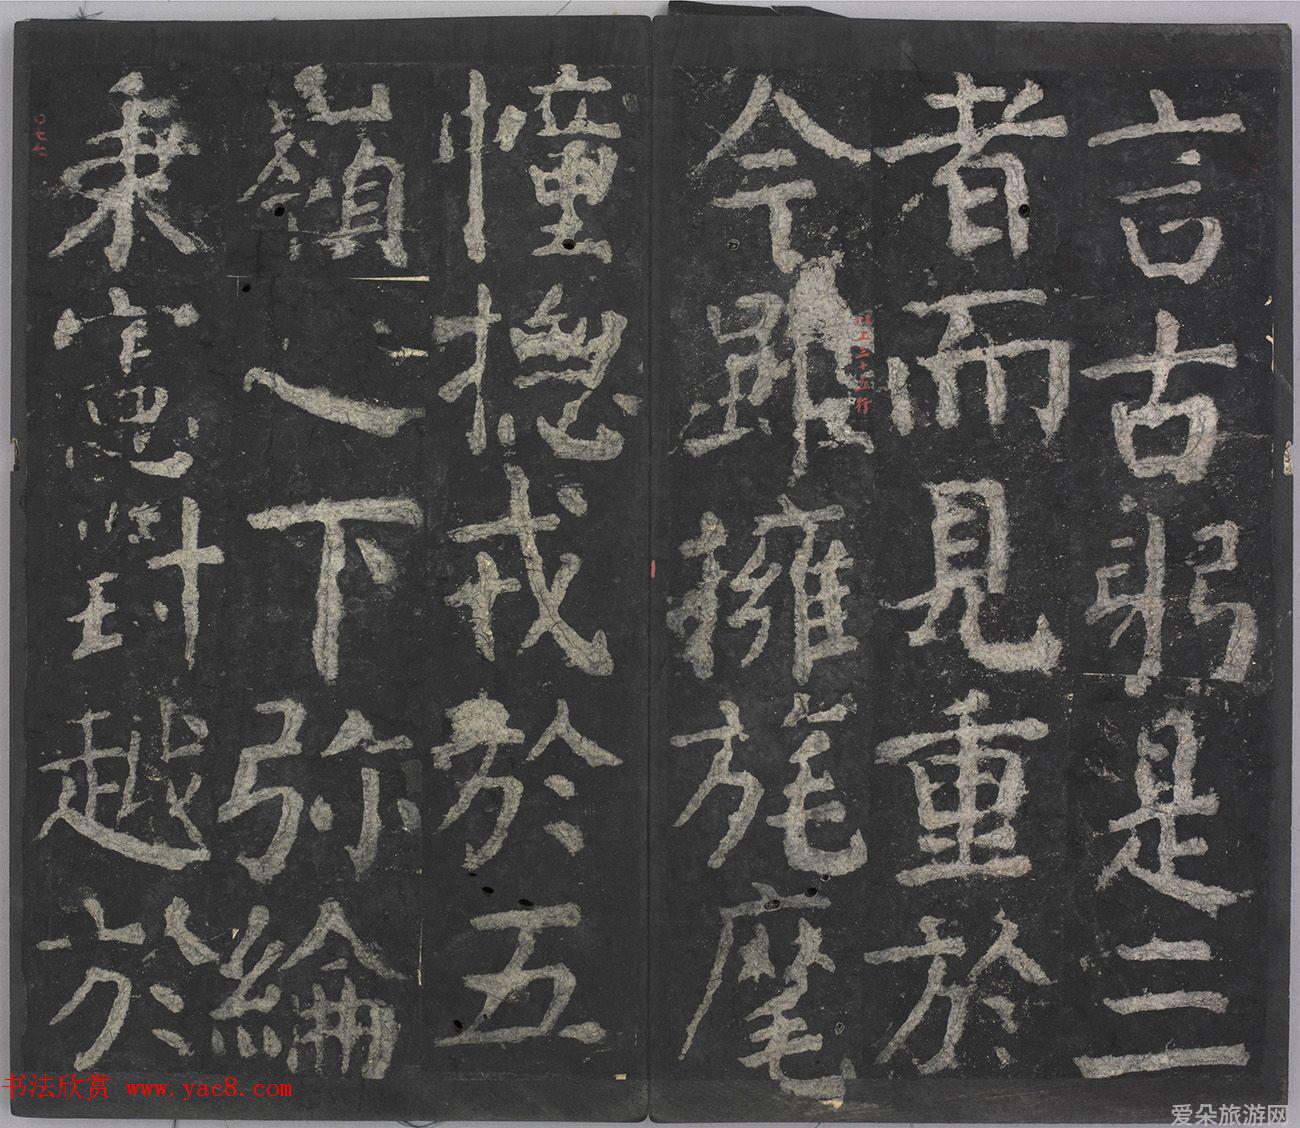 言古躬是三
者而見重於
今雖擁旄麾
幢揔戎於五
嶺之下弥綸
秉憲對越於
以上三十五行
书法欣赏 www.yac8.com
爱朵旅游网